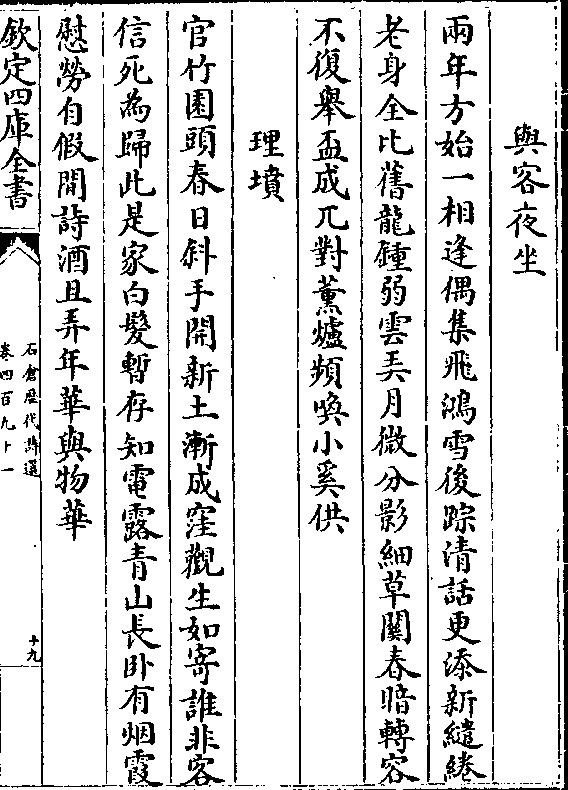 與客夜坐
兩年方始一相逢偶集飛鴻雪後踪清話更添新繾綣
老身全比舊龍鍾弱雲天月微分影細草關春暗轉容
不復舉盃成兀對薰爐頻喚小奚供
理墳
官竹園頭春日斜手開新土漸成窪觀生如寄誰非客
信死為歸此是家白髮暫存知電露青山長卧有烟霞
慰勞自假閒詩酒且弄年華與物華
欽定四庫全書
石倉歷代詩選
卷四百九十一
十九